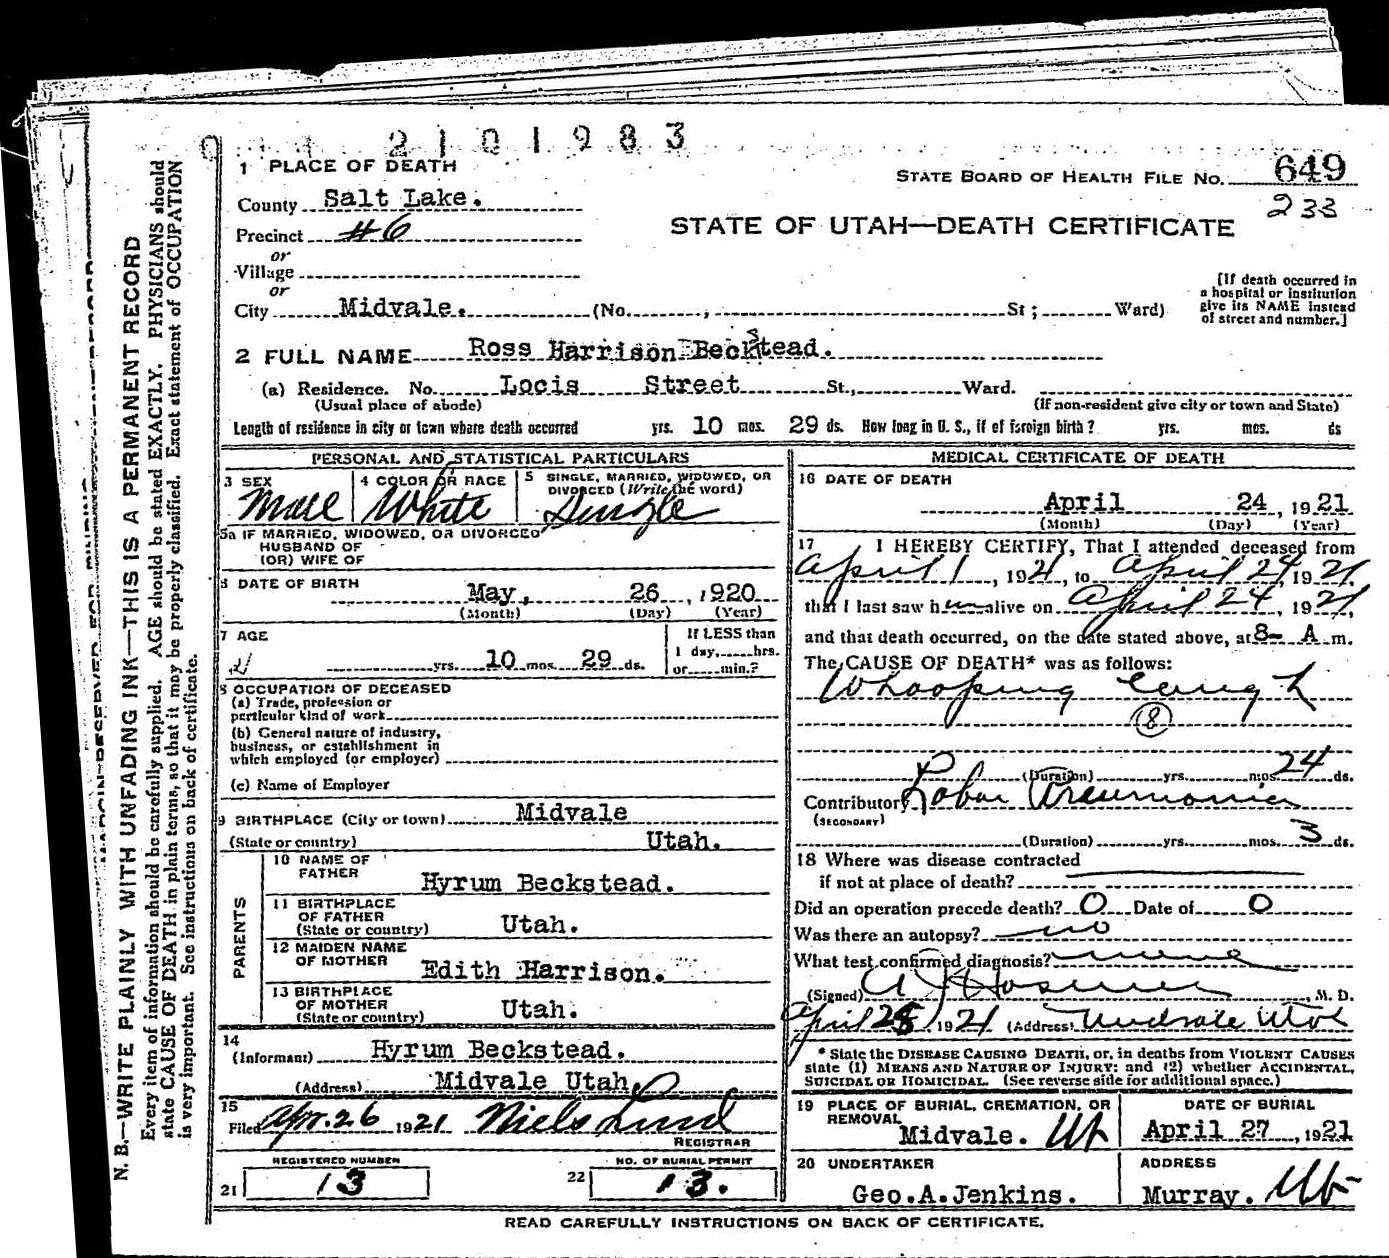 2101983
1 PLACE OF DEATH
STATE BOARD OF HEALTH FILE NO. 649
County Salt Lake.
233
Precinct #6
STATE OF UTAH—DEATH CERTIFICATE
or
Village
or
City Midvale. (No. , St; Ward)
[If death occurred in
a hospital or institution
give its NAME instead
of street and number.]
2 FULL NAME Ross Harrison Beckstead.
(a) Residence. No. Locis Street St., Ward.
(Usual place of abode)
(If non-resident give city or town and State)
Length of residence in city or town where death occurred yrs. 10 mos. 29 ds. How long in U. S., if of foreign birth? yrs. mos. ds
PERSONAL AND STATISTICAL PARTICULARS
3 SEX Male
4 COLOR OR RACE White
5 SINGLE, MARRIED, WIDOWED, OR
DIVORCED (Write the word)
Single
5a IF MARRIED, WIDOWED, OR DIVORCED
HUSBAND OF
(OR) WIFE OF
6 DATE OF BIRTH
May, 26, 1920
(Month) (Day) (Year)
7 AGE
yrs. 10 mos. 29 ds.
If LESS than
1 day, hrs.
or min.?
8 OCCUPATION OF DECEASED
(a) Trade, profession or
particular kind of work
(b) General nature of industry,
business, or establishment in
which employed (or employer)
(c) Name of Employer
9 BIRTHPLACE (City or town) Midvale
(State or country) Utah.
PARENTS
10 NAME OF
FATHER Hyrum Beckstead.
11 BIRTHPLACE
OF FATHER
(State or country) Utah.
12 MAIDEN NAME
OF MOTHER Edith Harrison.
13 BIRTHPLACE
OF MOTHER
(State or country) Utah.
14
(Informant) Hyrum Beckstead.
(Address) Midvale Utah,
15
Filed Apr. 26 1921 Niels Lind
REGISTRAR
REGISTERED NUMBER
21 13
NO. OF BURIAL PERMIT
22 13.
MEDICAL CERTIFICATE OF DEATH
16 DATE OF DEATH
April 24, 1921
(Month) (Day) (Year)
17 I HEREBY CERTIFY, That I attended deceased from
April 1, 1921, to April 24, 1921,
that I last saw him alive on April 24, 1921,
and that death occurred, on the date stated above, at 8- A m.
The CAUSE OF DEATH* was as follows:
Whooping Cough
8
(Duration) yrs. mos. 24 ds.
Contributory Lobar Pneumonia
(SECONDARY)
(Duration) yrs. mos. 3 ds.
18 Where was disease contracted
if not at place of death?
Did an operation precede death? 0 Date of 0
Was there an autopsy? no
What test confirmed diagnosis? none
(Signed) Hosmer, M. D.
April 25, 1921 (Address) Midvale Utah
* State the DISEASE CAUSING DEATH, or, in deaths from VIOLENT CAUSES
state (1) MEANS AND NATURE OF INJURY; and (2) whether ACCIDENTAL,
SUICIDAL OR HOMICIDAL. (See reverse side for additional space.)
19 PLACE OF BURIAL, CREMATION, OR
REMOVAL
Midvale. Ut
DATE OF BURIAL
April 27, 1921
20 UNDERTAKER
Geo.A.Jenkins.
ADDRESS
Murray. Ut
READ CAREFULLY INSTRUCTIONS ON BACK OF CERTIFICATE.
MARGIN RESERVED FOR BINDING
N. B.—WRITE PLAINLY WITH UNFADING INK—THIS IS A PERMANENT RECORD
Every item of information should be carefully supplied. AGE should be stated EXACTLY. PHYSICIANS should
state CAUSE OF DEATH in plain terms, so that it may be properly classified. Exact statement of OCCUPATION
is very important. See instructions on back of certificate.